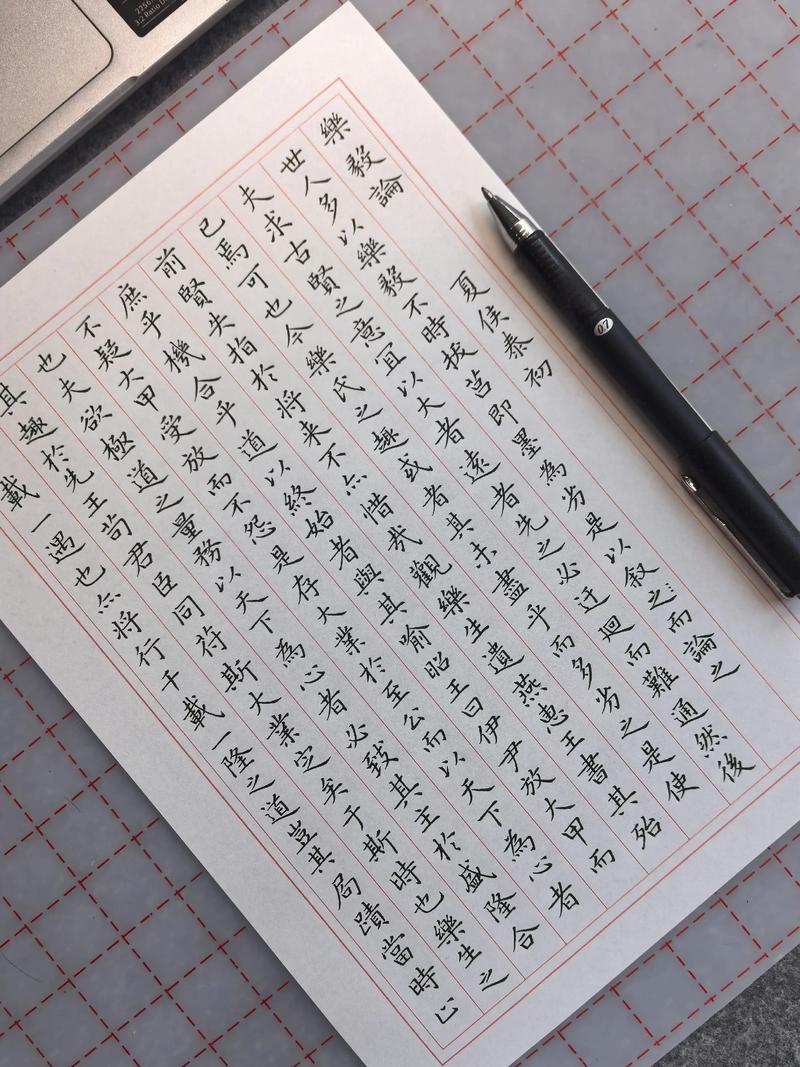 樂毅論 夏侯泰初
世人多以樂毅不時拔莒即墨為劣是以叙之而論之
夫求古賢之意宜以大者遠者先之必迂迴而難通然後
已焉可也今樂氏之趣或者其未盡乎而多劣之是使
前賢失指於將来不亦惜哉觀樂生遺燕惠王書其殆
庶乎機合乎道以終始者與其喻昭王曰伊尹放大甲而
不疑大甲受放而不怨是存大業於至公而以天下為心者
也夫欲極道之量務以天下為心者必致其主於盛隆合
其趣於先王苟君臣同苻斯大業定矣于斯時也樂生之
載一遇也亦將行千載一隆之道豈其局蹟當時止
0.7
3:2 Ratio